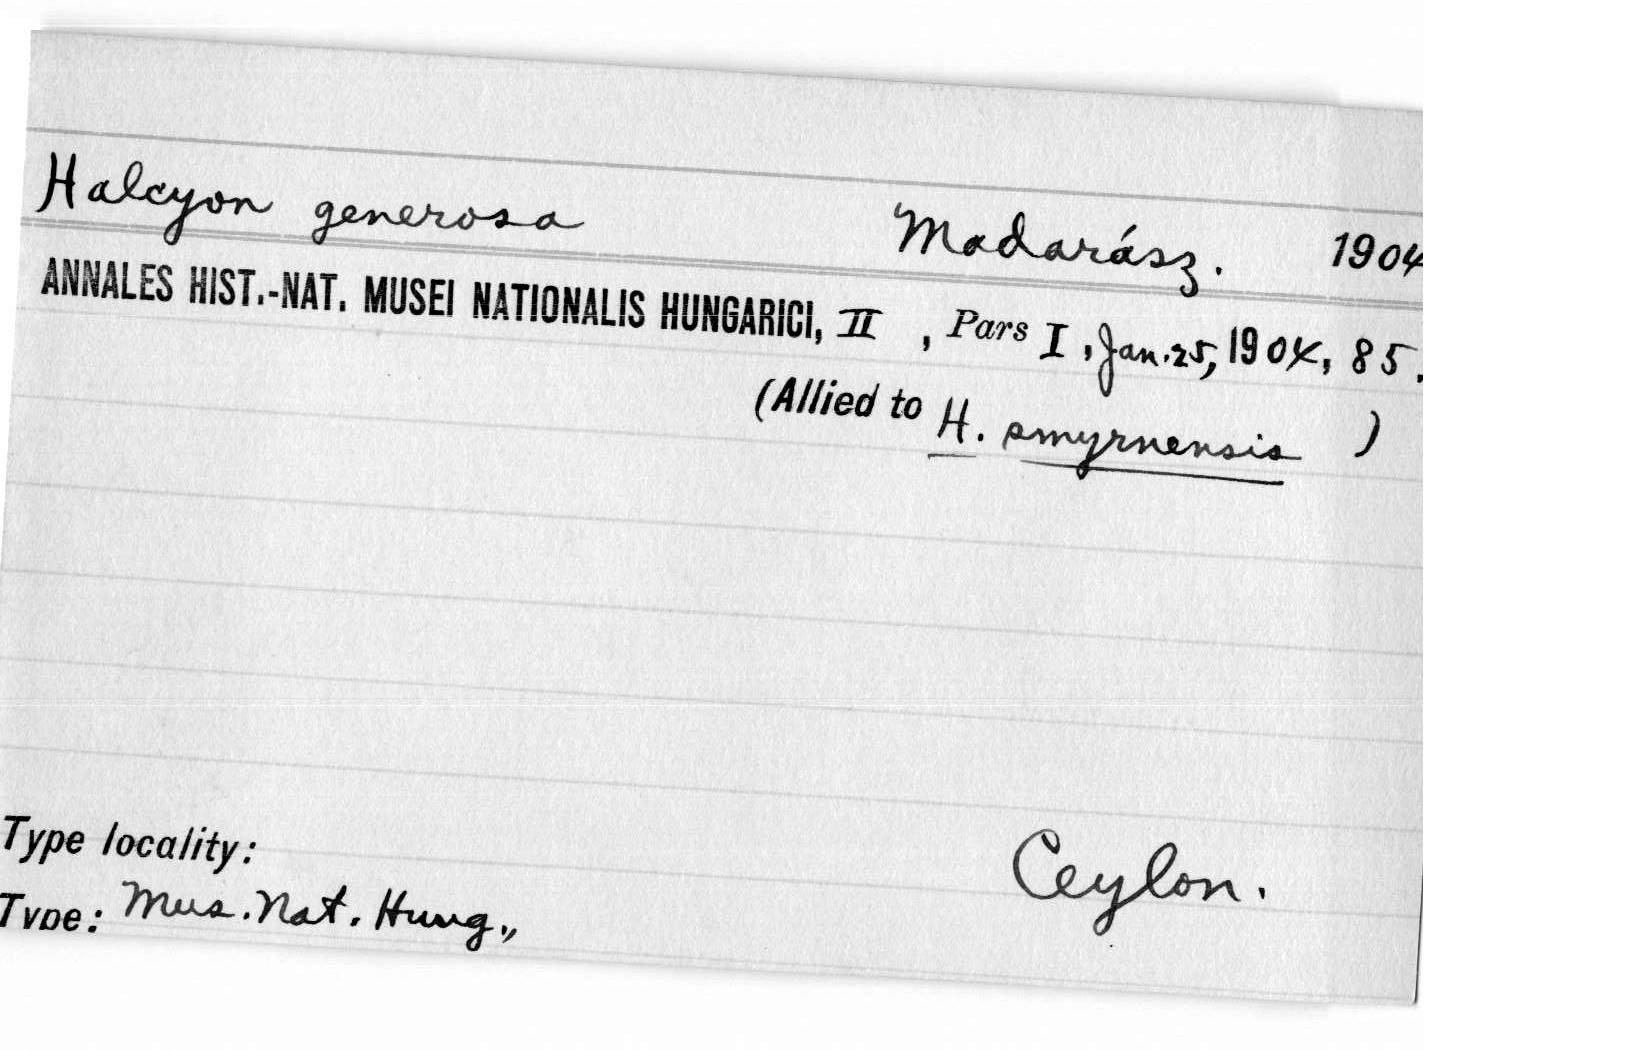 Halcyon generosa Madarász. 1904
ANNALES HIST.-NAT. MUSEI NATIONALIS HUNGARICI, II , Pars I , Jan. 25, 1904, 85.
(Allied to H. smyrnensis )
Type locality: Ceylon.
Type: Mus. Nat. Hung.,